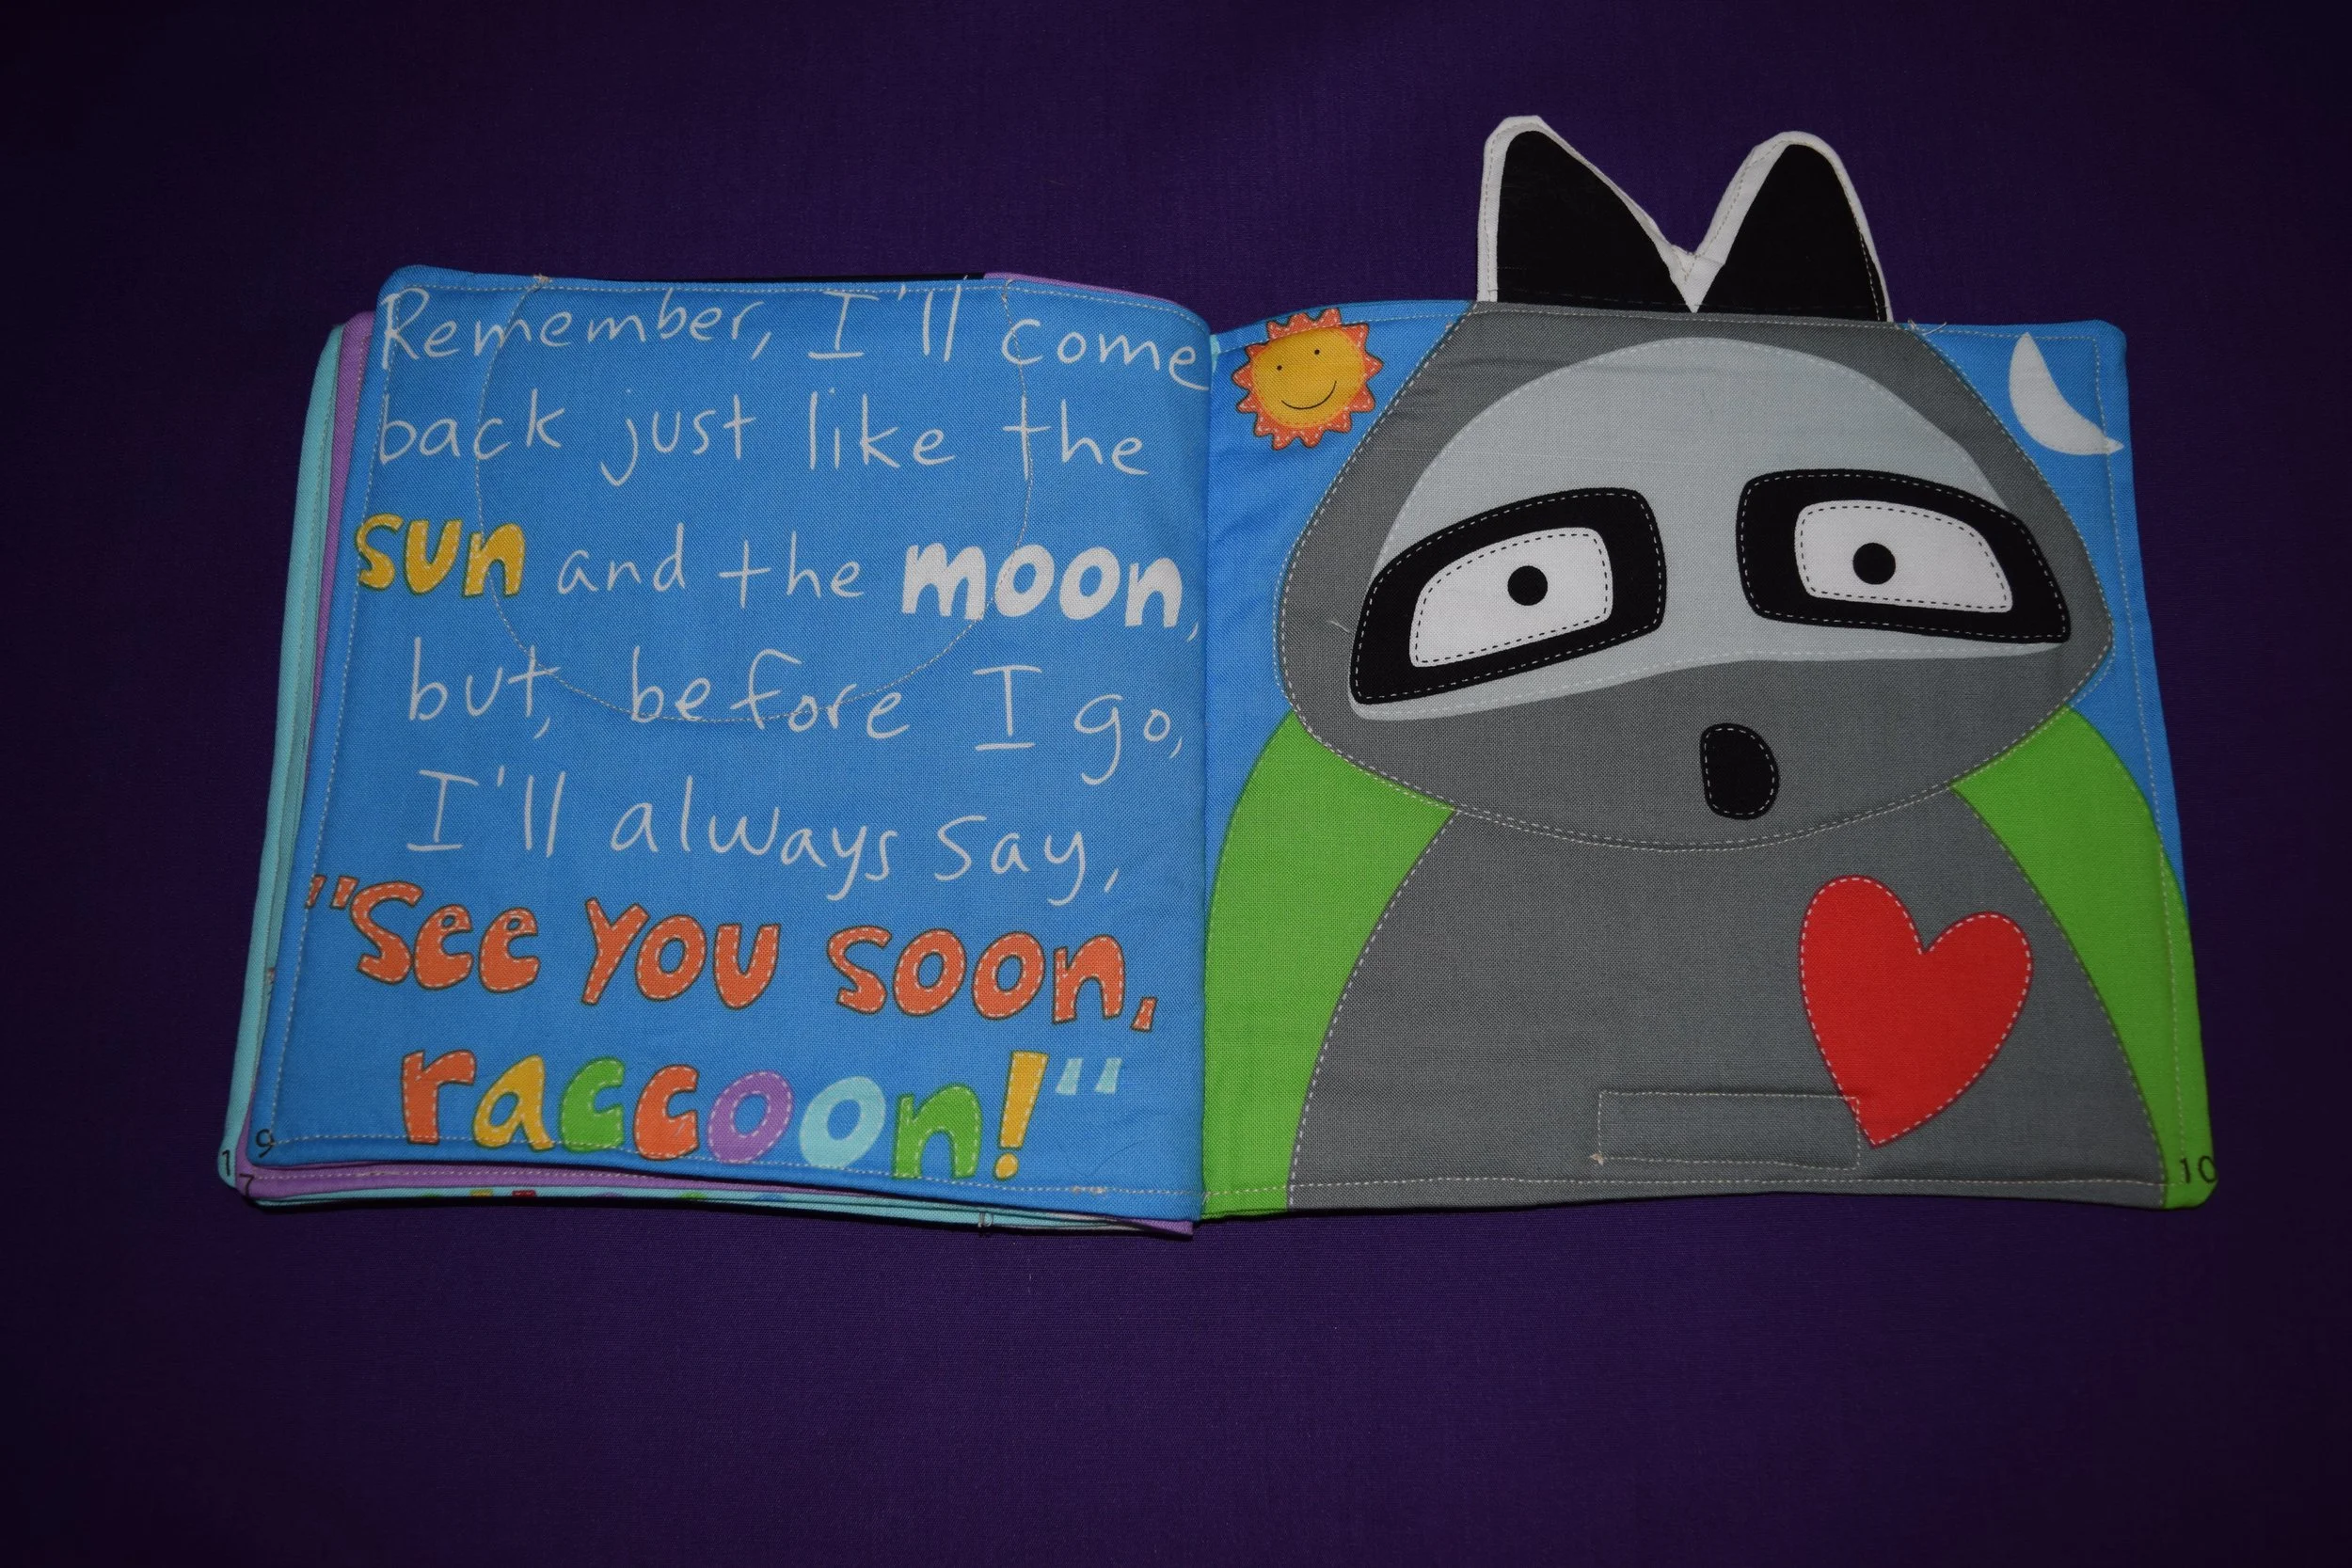 Remember, I'll come
back just like the
sun and the moon,
but, before I go,
I'll always say,
"See you soon,
raccoon!"
9
1
7
10